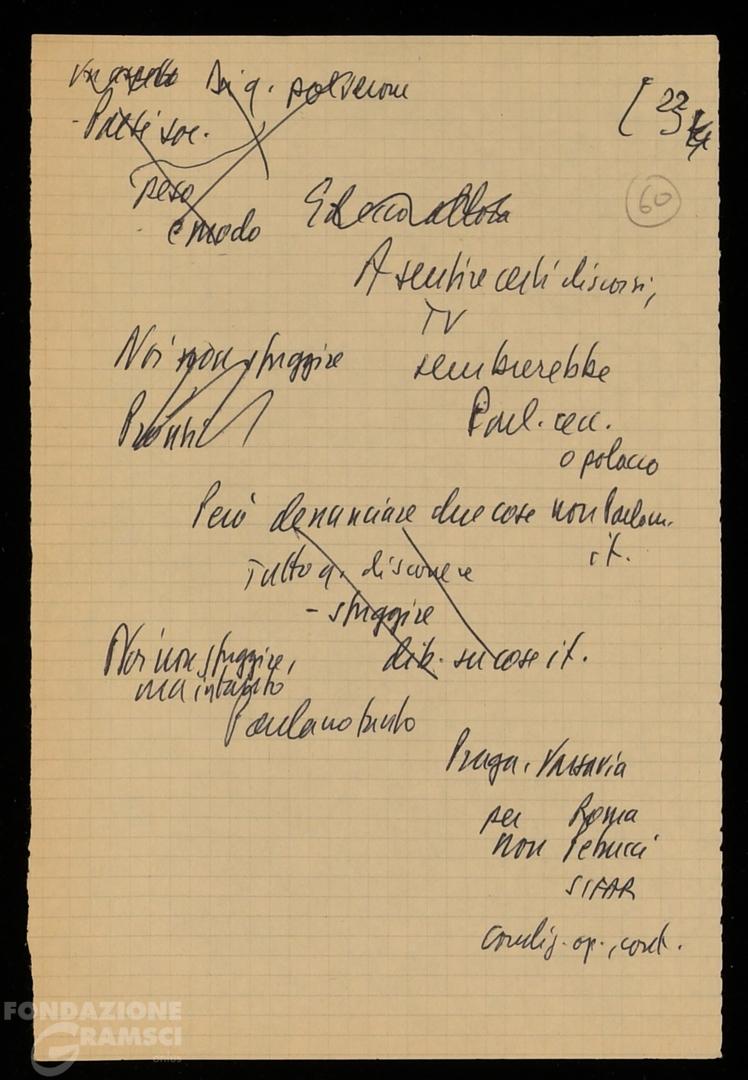 Di q. polverone
- Paesi soc.
[ 23
60
peso
- e modo
Ed ecco allora
A sentire certi discorsi,
TV
Noi non sfuggire
sembrerebbe
Pronti
Parl. cec.
o polacco
Però denunciare due cose non Parlam.
it.
Tutto q. discorrere
- sfuggire
dib. su cose it.
Noi non sfuggire,
ma intanto
Parlano tanto
Praga, Varsavia
per Roma
non Petrucci
SIFAR
condiz. op., cont.
FONDAZIONE
GRAMSCI
onlus